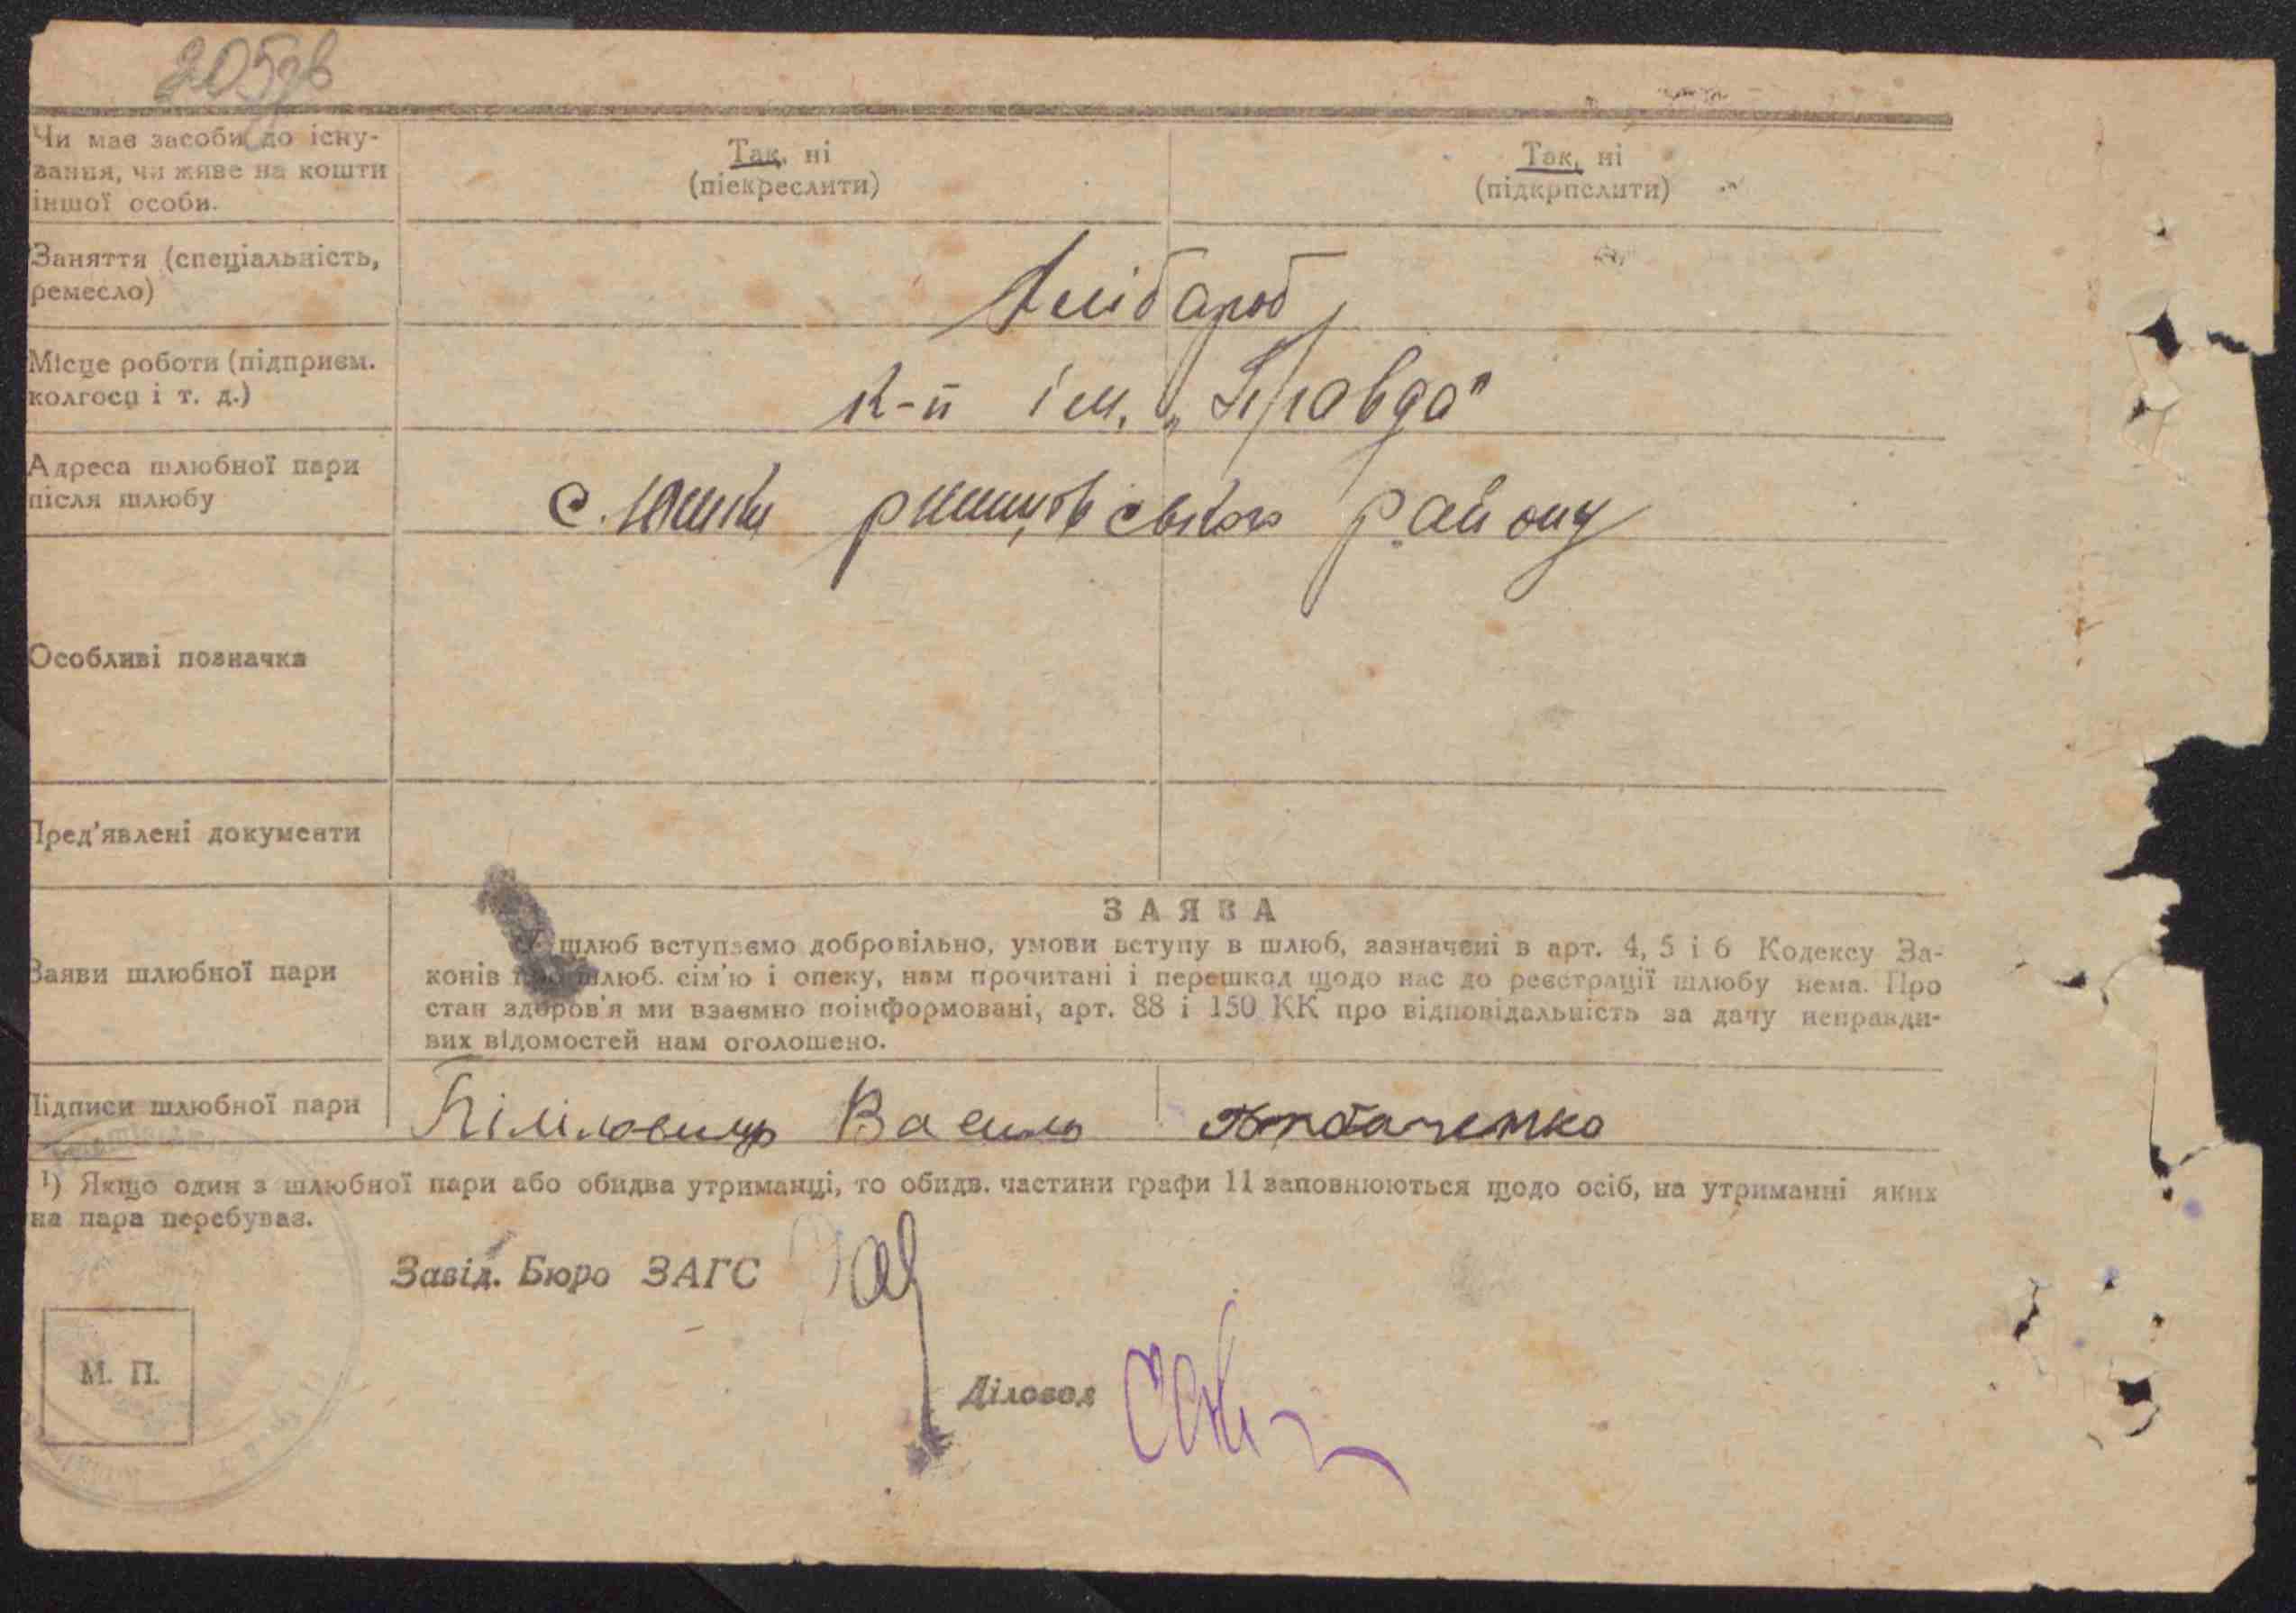 205зв
Чи має засоби до існу-
вання, чи живе на кошти
іншої особи.
Так, ні
(піекреслити)
Так, ні
(підкрпслити)
Заняття (спеціальність,
ремесло)
Хлібароб
Місце роботи (підприєм.
колгосп і т. д.)
к-п ім. „Правда"
Адреса шлюбної пари
після шлюбу
с. Юшки ржищівського району
Особливі позначка
Пред'явлені документи
Заяви шлюбної пари
ЗАЯВА
У шлюб вступаємо добровільно, умови вступу в шлюб, зазначені в арт. 4, 5 і 6 Кодексу За-
конів про шлюб. сім'ю і опеку, нам прочитані і перешкод щодо нас до реєстрації шлюбу нема. Про
стан здоров'я ми взаємно поінформовані, арт. 88 і 150 КК про відповідальність за дачу неправди-
вих відомостей нам оголошено.
Підписи шлюбної пари
Василь
¹) Якщо один з шлюбної пари або обидва утриманці, то обидв. частини графи 11 заповнюються щодо осіб, на утриманні яких
на пара перебуває.
Завід. Бюро ЗАГС
Діловод
М. П.